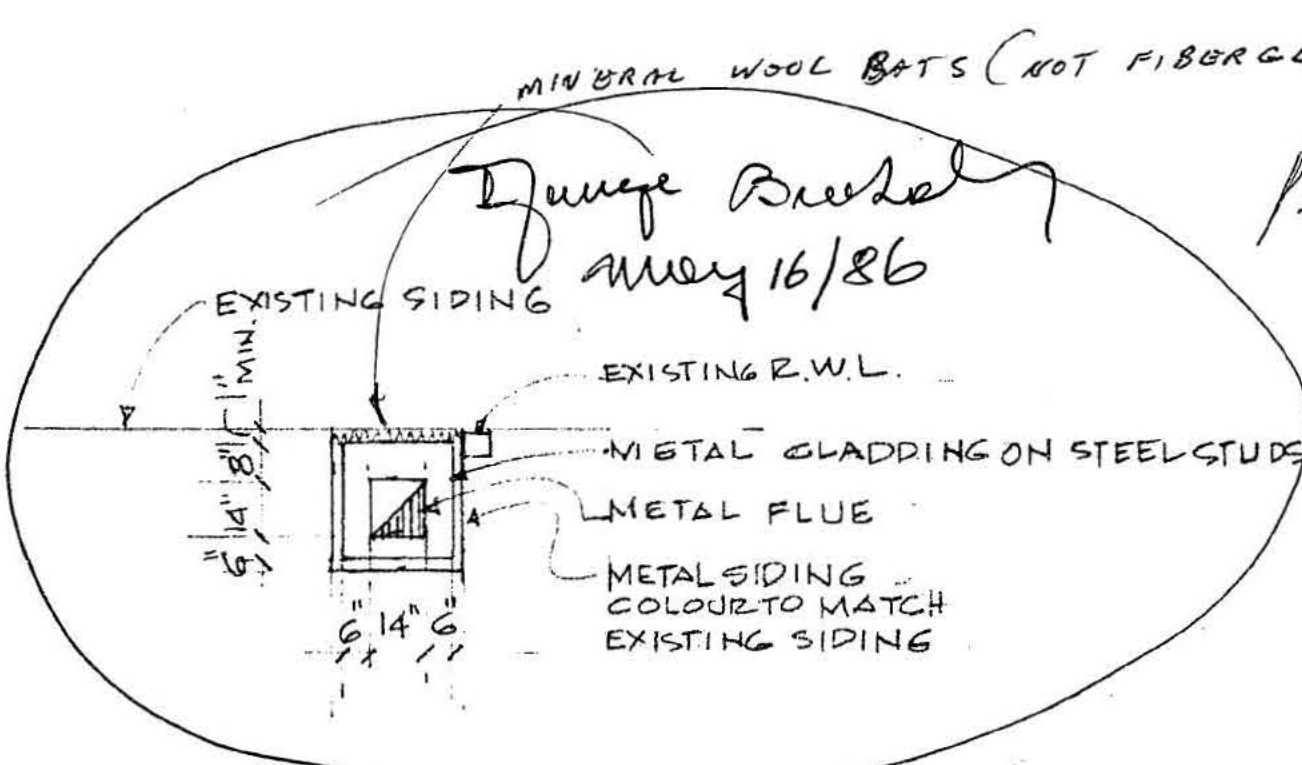 MINERAL WOOL BATS (NOT
May 16/86
EXISTING SIDING
1" MIN.
8"
14"
6"
EXISTING R.W.L.
METAL CLADDING ON STEEL STUDS
METAL FLUE
METAL SIDING
COLOUR TO MATCH
EXISTING SIDING
6" 14" 6"